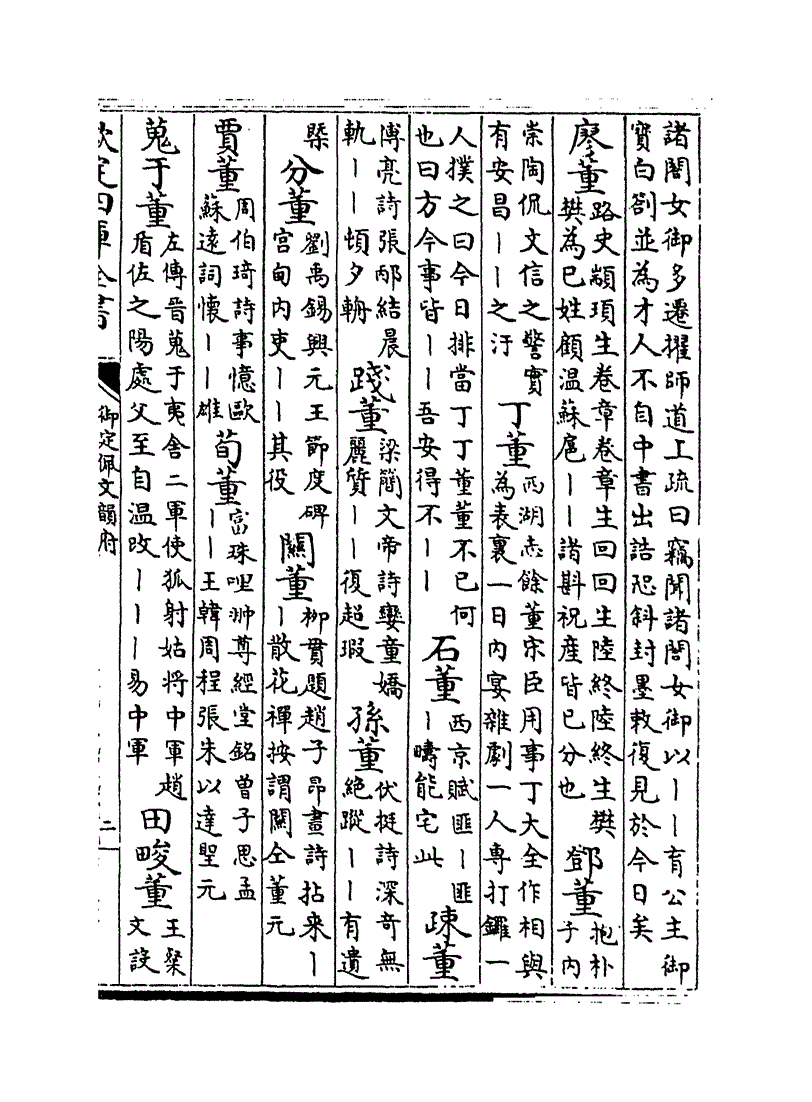 諸閤女御多遷擢師道上疏曰竊聞諸閤女御以｜｜育公主御
寳白劄並為才人不自中書出誥恐斜封墨敕復見於今日矣
廖董路史顓頊生卷章卷章生回回生陸終陸終生樊
樊為己姓顧温蘇扈｜｜諸斟祝産皆已分也
鄧董抱朴子内
崇陶侃文信之謦實
有安昌｜｜之汙
丁董西湖志餘董宋臣用事丁大全作相與
為表裏一日内宴雜劇一人專打鑼一
人撲之曰今日排當丁丁董董不已何
也曰方今事皆｜｜吾安得不｜｜
石董西京賦匪｜匪
｜疇能宅此
踈董
傅亮詩張邴結晨
軌｜｜頓夕輈
踐董梁簡文帝詩孌童嬌
麗質｜｜復超瑕
孫董伏挺詩深竒無
絶蹤｜｜有遺
槩
分董劉禹錫興元王節度碑
宫甸内吏｜｜其役
關董栁貫題趙子昂畫詩拈来｜
｜散花禪按謂關仝董元
賈董周伯琦詩事憶歐
蘇遠詞懷｜｜雄
荀董富珠哩翀尊經堂銘曾子思孟
｜｜王韓周程張朱以達聖元
蒐于董左傳晉蒐于夷舍二軍使狐射姑将中軍趙
盾佐之陽處父至自温改｜｜｜易中軍
田畯董王粲
文設
欽定四庫全書
御定佩文韻府
二